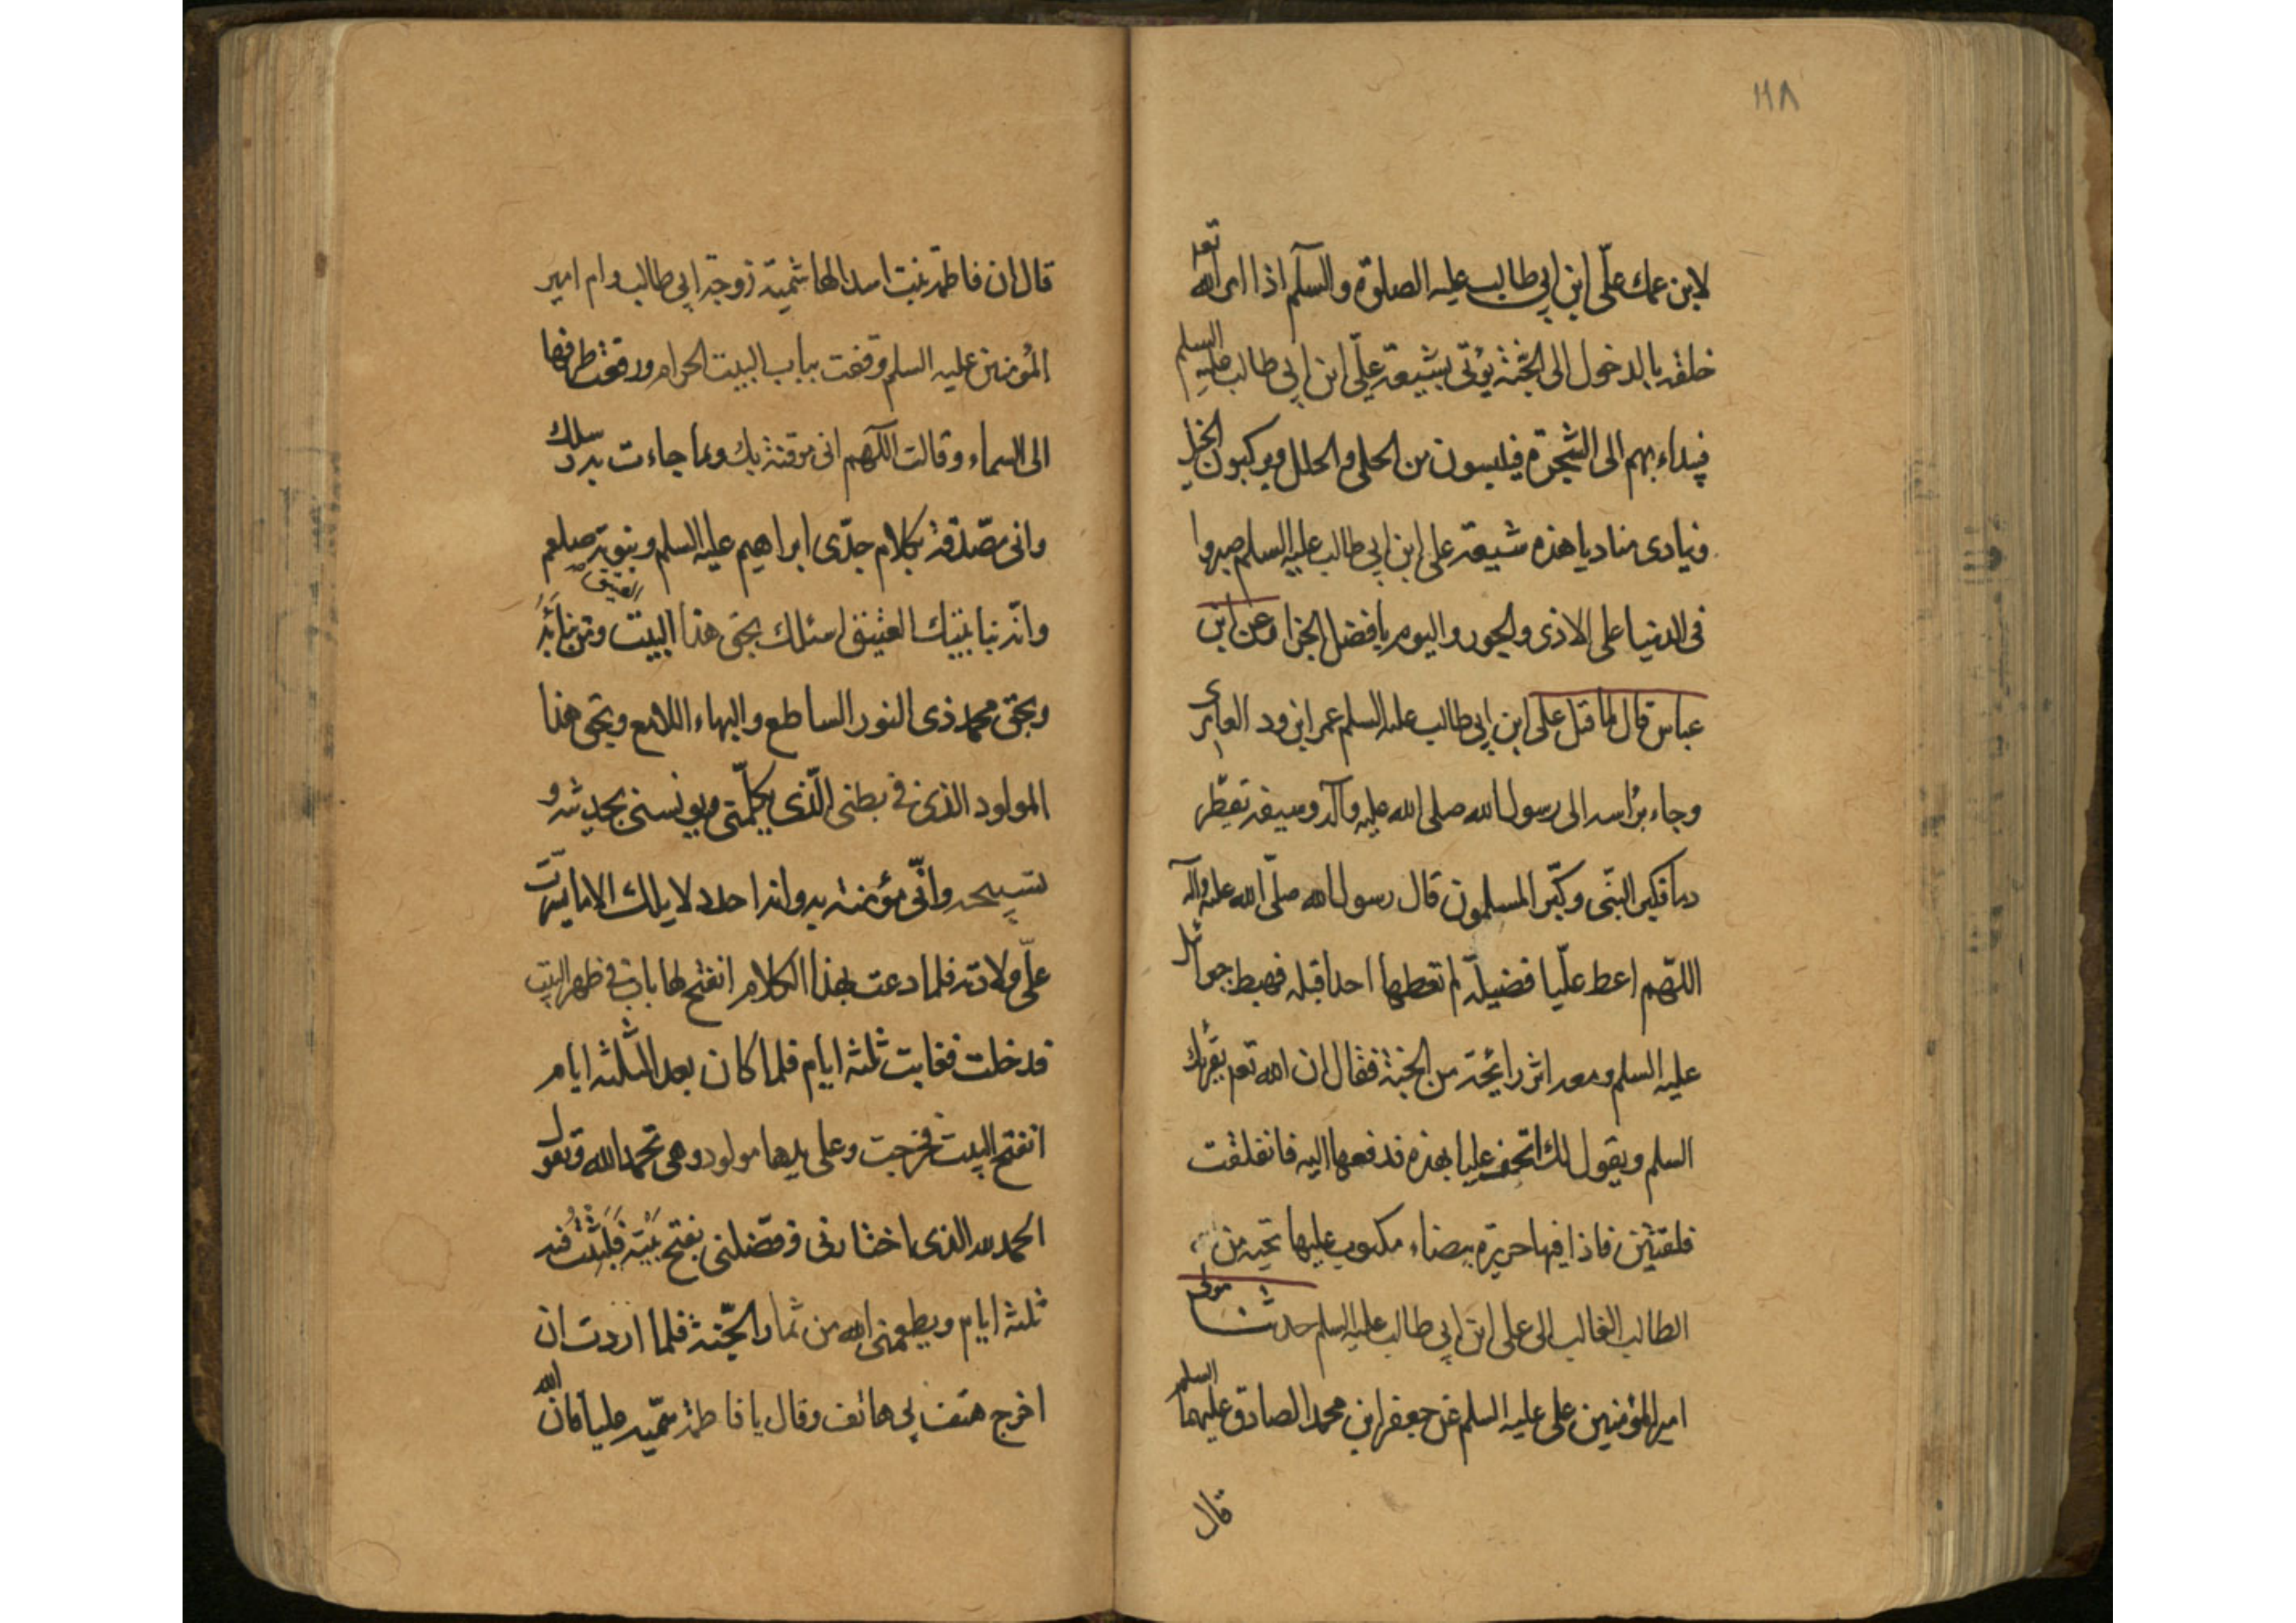 ١١٨
لابن عمك علّى ابن ابي طالب عليه الصلوة والسلٓم اذا امر الله تعه
خلقه بالدخول الى الجّنة يؤتى بشيعة علّى ابن ابي طالب عليه السلم
فينداء بهم الى الشجرة فيلبسون من الحلى والحلل ويركبون الخيل
وينادى مناديا هذه شيعة على ابن ابي طالب عليه السلم صبروا
فى الدنيا على الاذى والجور واليوم يا فضل الجزا وعن ابن
عباس قال لما قتل على ابن ابي طالب عليه السلم عمر ابن ود العامرى
وجاء براسه الى رسول الله صلى الله عليه وآله وسيفه تقطّر
دما فكبر النبّى وكبّر المسلمون قال رسول الله صلّى الله عليه وآله
اللهّم اعط علّيا فضيلة لم تعطها احدا قبله فهبط جبرائيل
عليه السلم ومعه اثر رايحة من الجنة فقال ان الله تعه يقرئك
السلم ويقول لك اتحف عليا بهذه فدفعها اليه فانفلقت
فلقتين فاذا فيها حريرة بيضاء مكتوب عليها تحية من
الطالب الغالب الى على ابن ابي طالب عليه السلم حدثنا مولى
امير المؤمنين على عليه السلم عن جعفر ابن محمد الصادق عليهما السلم
قال
قال ان فاطمة بنت اسد الهاشمية زوجة ابي طالب وام امير
المؤمنين عليه السلم وقفت بباب البيت الحرام ورفعت طرفها
الى السماء وقالت اللّٓهم انى موقنة بك وبما جاءت به رسلك
وانى مصّدقة بكلام جدّى ابراهيم عليه السلم وبنبوته صلعم
وانّه بنا بيتك العتيق اسئلك بحق هذا البيت ومن بناه
وبحق محمد ذى النور الساطع والبهاء اللامع وبحق هذا
المولود الذى فى بطنى الّذى يكلّمنى ويونسنى بحديثه و
تسبيحه وانّى مؤمنة به وانه احد دلايلك الا ما يسّرت
علّى ولادته فلما دعت بهذا الكلام انفتح لها باب فى ظهر البيت
فدخلت فغابت ثلثه ايام فلما كان بعد الثلثه ايام
انفتح البيت فخرجت وعلى يدها مولود وهى تحمد الله وتقول
الحمد لله الذى اختارنى وفضّلنى بفتح بيته فلبثت فيه
ثلثة ايام ويطعمنى الله من ثمار الجّنة فلما اردت ان
اخرج هتف بى هاتف وقال يا فاطمة سمّيه عليا فان الله